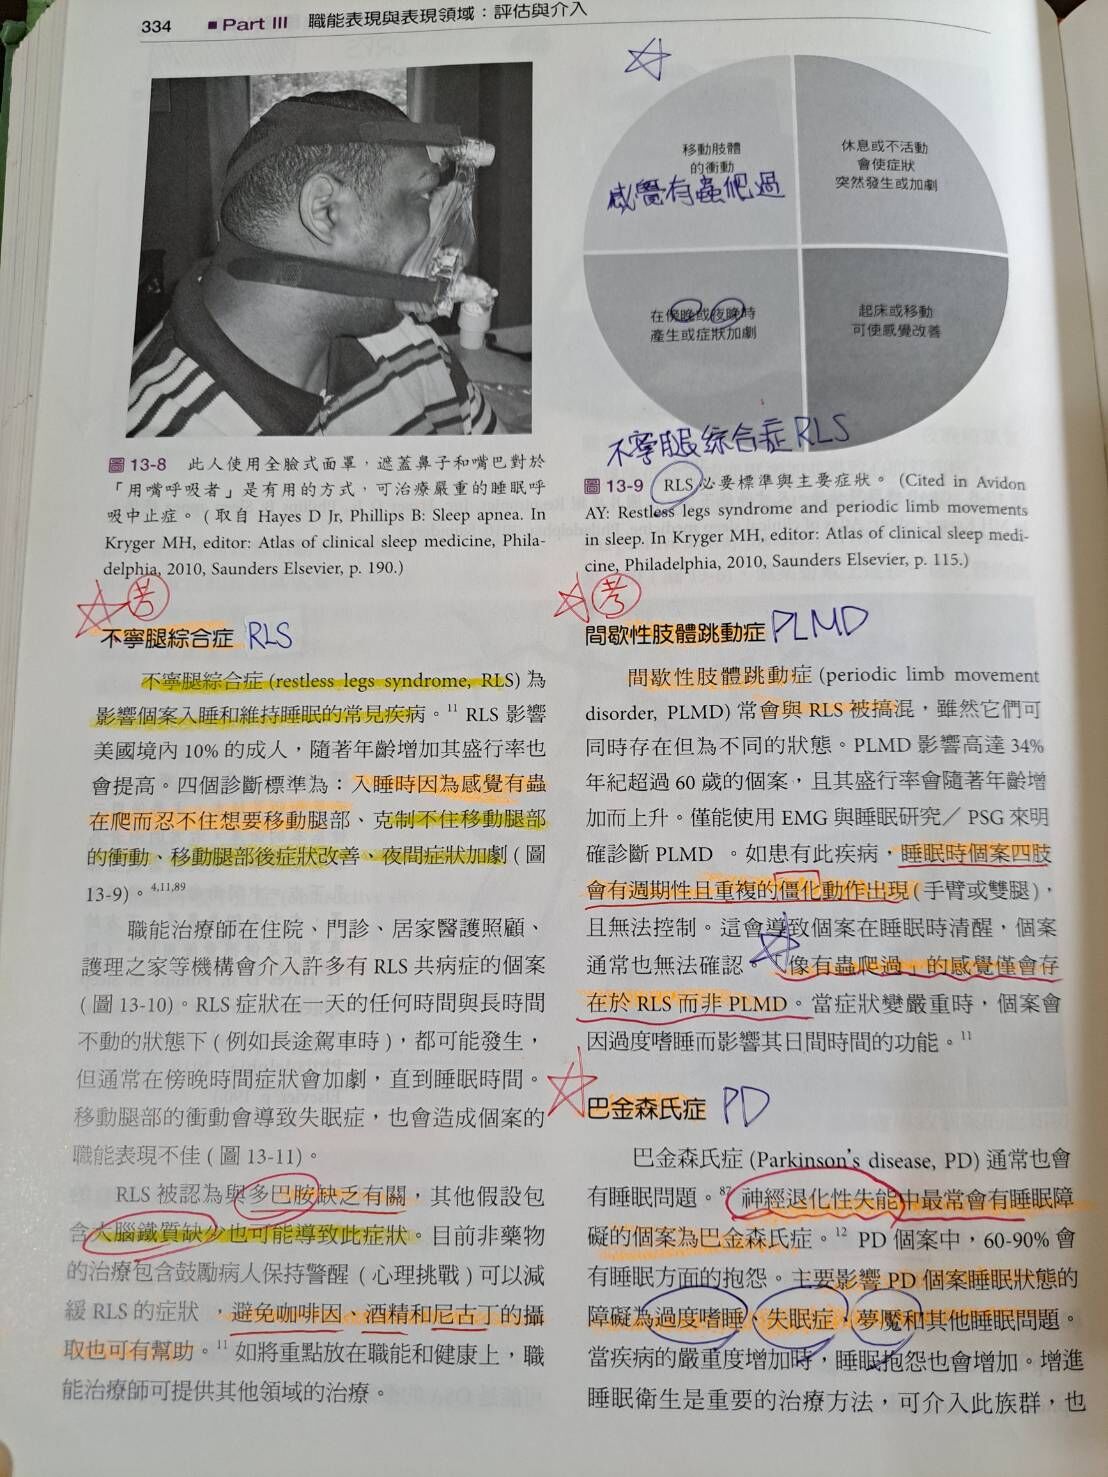 334 ■ Part III 職能表現與表現領域：評估與介入
圖 13-8 此人使用全臉式面罩，遮蓋鼻子和嘴巴對於
「用嘴呼吸者」是有用的方式，可治療嚴重的睡眠呼
吸中止症。（取自 Hayes D Jr, Phillips B: Sleep apnea. In
Kryger MH, editor: Atlas of clinical sleep medicine, Phila-
delphia, 2010, Saunders Elsevier, p. 190.)
考
不寧腿綜合症 RLS
不寧腿綜合症 (restless legs syndrome, RLS) 為
影響個案入睡和維持睡眠的常見疾病。11 RLS 影響
美國境內 10% 的成人，隨著年齡增加其盛行率也
會提高。四個診斷標準為：入睡時因為感覺有蟲
在爬而忍不住想要移動腿部、克制不住移動腿部
的衝動、移動腿部後症狀改善、夜間症狀加劇 (圖
13-9)。4,11,89
職能治療師在住院、門診、居家醫護照顧、
護理之家等機構會介入許多有 RLS 共病症的個案
(圖 13-10)。RLS 症狀在一天的任何時間與長時間
不動的狀態下 (例如長途駕車時)，都可能發生，
但通常在傍晚時間症狀會加劇，直到睡眠時間。
移動腿部的衝動會導致失眠症，也會造成個案的
職能表現不佳 (圖 13-11)。
RLS 被認為與多巴胺缺乏有關，其他假設包
含大腦鐵質缺少也可能導致此症狀。目前非藥物
的治療包含鼓勵病人保持警醒 (心理挑戰) 可以減
緩 RLS 的症狀 ，避免咖啡因、酒精和尼古丁的攝
取也可有幫助。11 如將重點放在職能和健康上，職
能治療師可提供其他領域的治療。
移動肢體
的衝動
感覺有蟲爬過
休息或不活動
會使症狀
突然發生或加劇
在傍晚或夜晚時
產生或症狀加劇
起床或移動
可使感覺改善
不寧腿綜合症 RLS
圖 13-9 RLS 必要標準與主要症狀。 (Cited in Avidon
AY: Restless legs syndrome and periodic limb movements
in sleep. In Kryger MH, editor: Atlas of clinical sleep medi-
cine, Philadelphia, 2010, Saunders Elsevier, p. 115.)
考
間歇性肢體跳動症 PLMD
間歇性肢體跳動症 (periodic limb movement
disorder, PLMD) 常會與 RLS 被搞混，雖然它們可
同時存在但為不同的狀態。PLMD 影響高達 34%
年紀超過 60 歲的個案，且其盛行率會隨著年齡增
加而上升。僅能使用 EMG 與睡眠研究／ PSG 來明
確診斷 PLMD 。如患有此疾病，睡眠時個案四肢
會有週期性且重複的僵化動作出現 (手臂或雙腿)，
且無法控制。這會導致個案在睡眠時清醒，個案
通常也無法確認。「像有蟲爬過」的感覺僅會存
在於 RLS 而非 PLMD。當症狀變嚴重時，個案會
因過度嗜睡而影響其日間時間的功能。11
巴金森氏症 PD
巴金森氏症 (Parkinson's disease, PD) 通常也會
有睡眠問題。87 神經退化性失能中最常會有睡眠障
礙的個案為巴金森氏症。12 PD 個案中，60-90% 會
有睡眠方面的抱怨。主要影響 PD 個案睡眠狀態的
障礙為過度嗜睡、失眠症，夢魘和其他睡眠問題。
當疾病的嚴重度增加時，睡眠抱怨也會增加。增進
睡眠衛生是重要的治療方法，可介入此族群，也